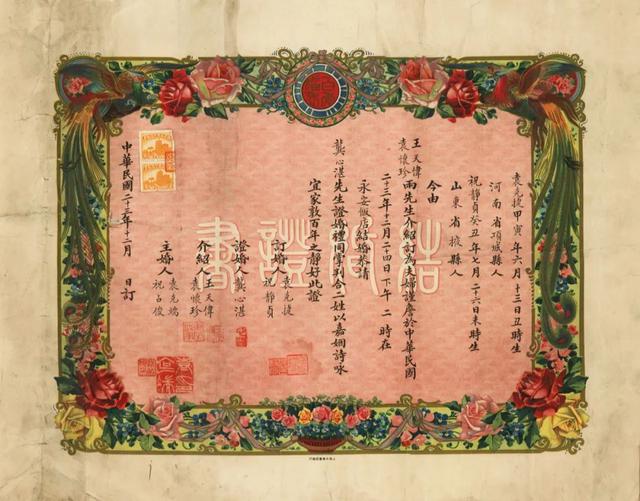 結婚證書
袁克捷甲寅年六月十三日丑時生
河南省項城縣人
祝靜貞癸丑年七月二十六日未時生
山東省掖縣人
今由
王天偉
袁懷珍
兩先生介紹訂為夫婦謹詹於中華民國
二十三年十二月二十四日下午二時在
永安飯店結婚恭請
龔心湛先生證婚禮同掌判合二姓以嘉姻詩詠
宜家敦百年之靜好此證
訂婚人 袁克捷
祝靜貞
證婚人 龔心湛
介紹人 王天偉
袁懷珍
主婚人 袁克端
祝占俊
中華民國二十三年十二月 日訂